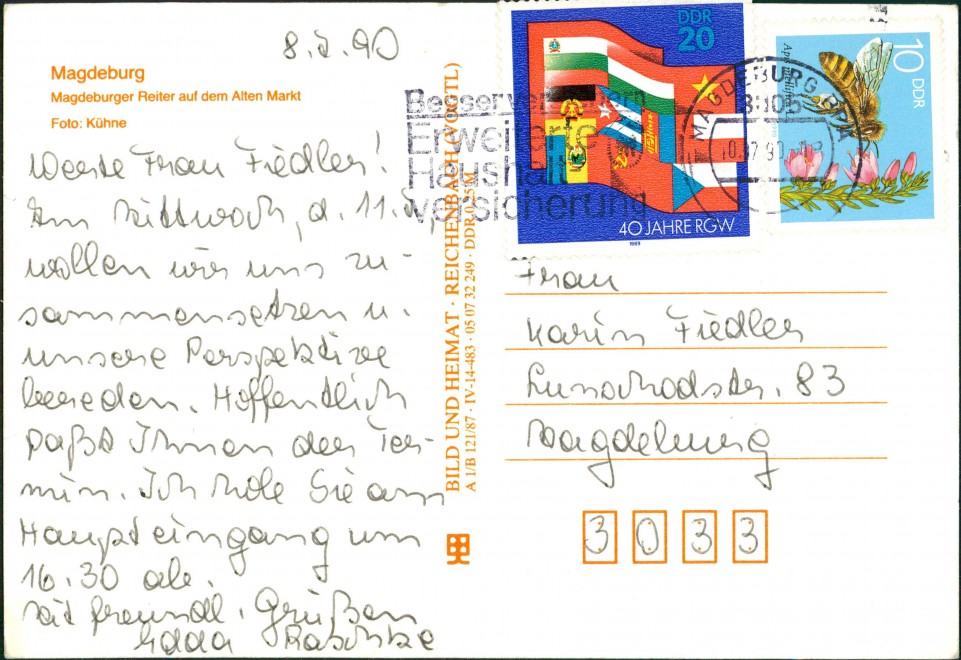 8.7.90
Magdeburg
Magdeburger Reiter auf dem Alten Markt
Foto: Kühne
Werte Frau Fiedler!
Am Mittwoch, d. 11.7.
wollen wir uns zu-
sammensetzen u.
unsere Perspektive
bereden. Hoffentlich
paßt Ihnen der Ter-
min. Ich hole Sie am
Haupteingang um
16.30 ab.
Mit freundl. Grüßen
Edda Raschke
BILD UND HEIMAT · REICHENBACH (VOGTL)
A 1/B 121/87 · IV-14-483 · 05 07 32 249 · DDR M
Erweiterte
Haushalt
versicherung
MAGDEBURG BPA
DDR
20
40 JAHRE RGW
1989
10
DDR
Frau
Karin Fiedler
Lunochodstr. 83
Magdeburg
3 0 3 3